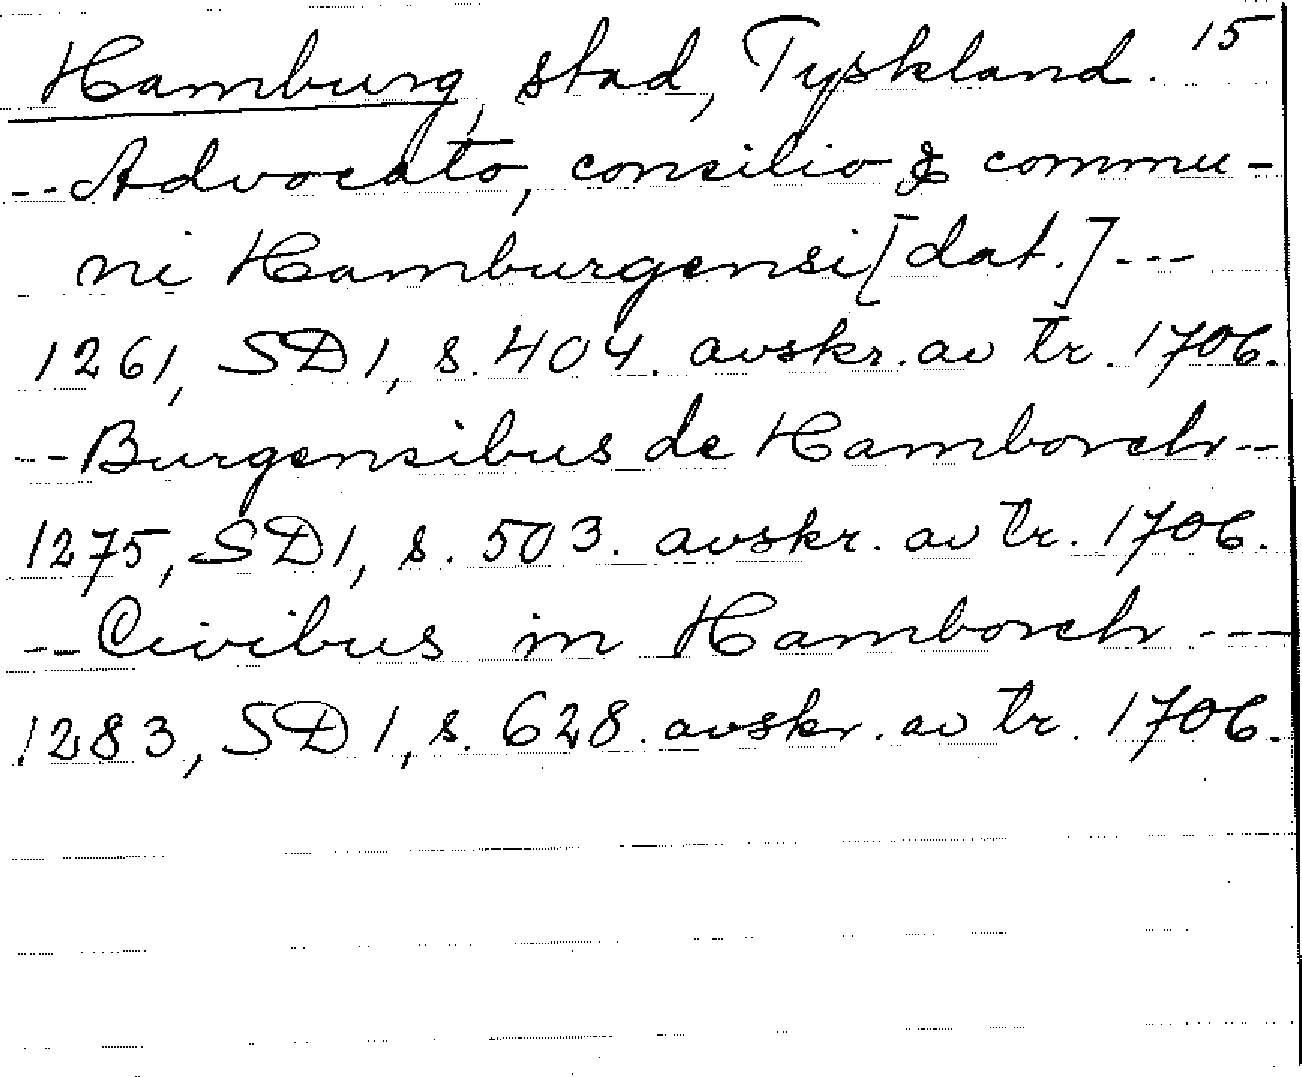 Hamburg, stad, Tyskland. 15
-- Advocato, consilio & commu-
ni Hamburgensi [dat.] ---
1261, SD 1, s. 404. avskr. av tr. 1706.
-- Burgensibus de Hamborch --
1275, SD 1, s. 503. avskr. av tr. 1706.
-- Civibus in Hamborch ---
1283, SD 1, s. 628. avskr. av tr. 1706.